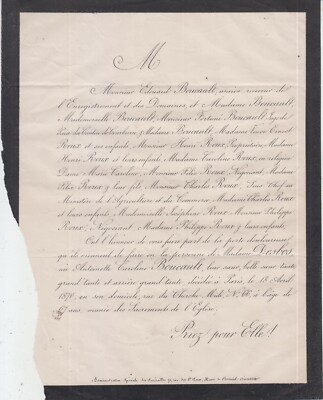 M
Monsieur Edouard Boucault, ancien receveur de
l'Enregistrement et des Domaines, et Madame Boucault,
Mademoiselle Boucault, Monsieur Boucault Juge de
Paix du Canton de & Madame Boucault, Madame Veuve Ernest
Roux et ses enfants, Monsieur Henri Roux Propriétaire, Madame
Henri Roux et leurs enfants, Madame Caroline Roux en religion
Dame Marie Caroline, Monsieur Félix Roux Négociant, Madame
Félix Roux & leur fils, Monsieur Charles Roux, Sous Chef au
Ministère de l'Agriculture et du Commerce, Madame Charles Roux
et leurs enfants, Mademoiselle Joséphine Roux, Monsieur Philippe
Roux, Négociant, Madame Philippe Roux & leurs enfants,
Ont l'honneur de vous faire part de la perte douloureuse
qu'ils viennent de faire en la personne de Madame Desbos
née Antoinette Caroline Boucault, leur sœur, belle sœur, tante
grand'tante et arrière grand'tante, décédée à Paris, le 18 Avril
1876, en son domicile, rue du Cherche Midi, N° à l'âge de
ans, munie des Sacrements de l'Eglise.
Priez pour Elle!